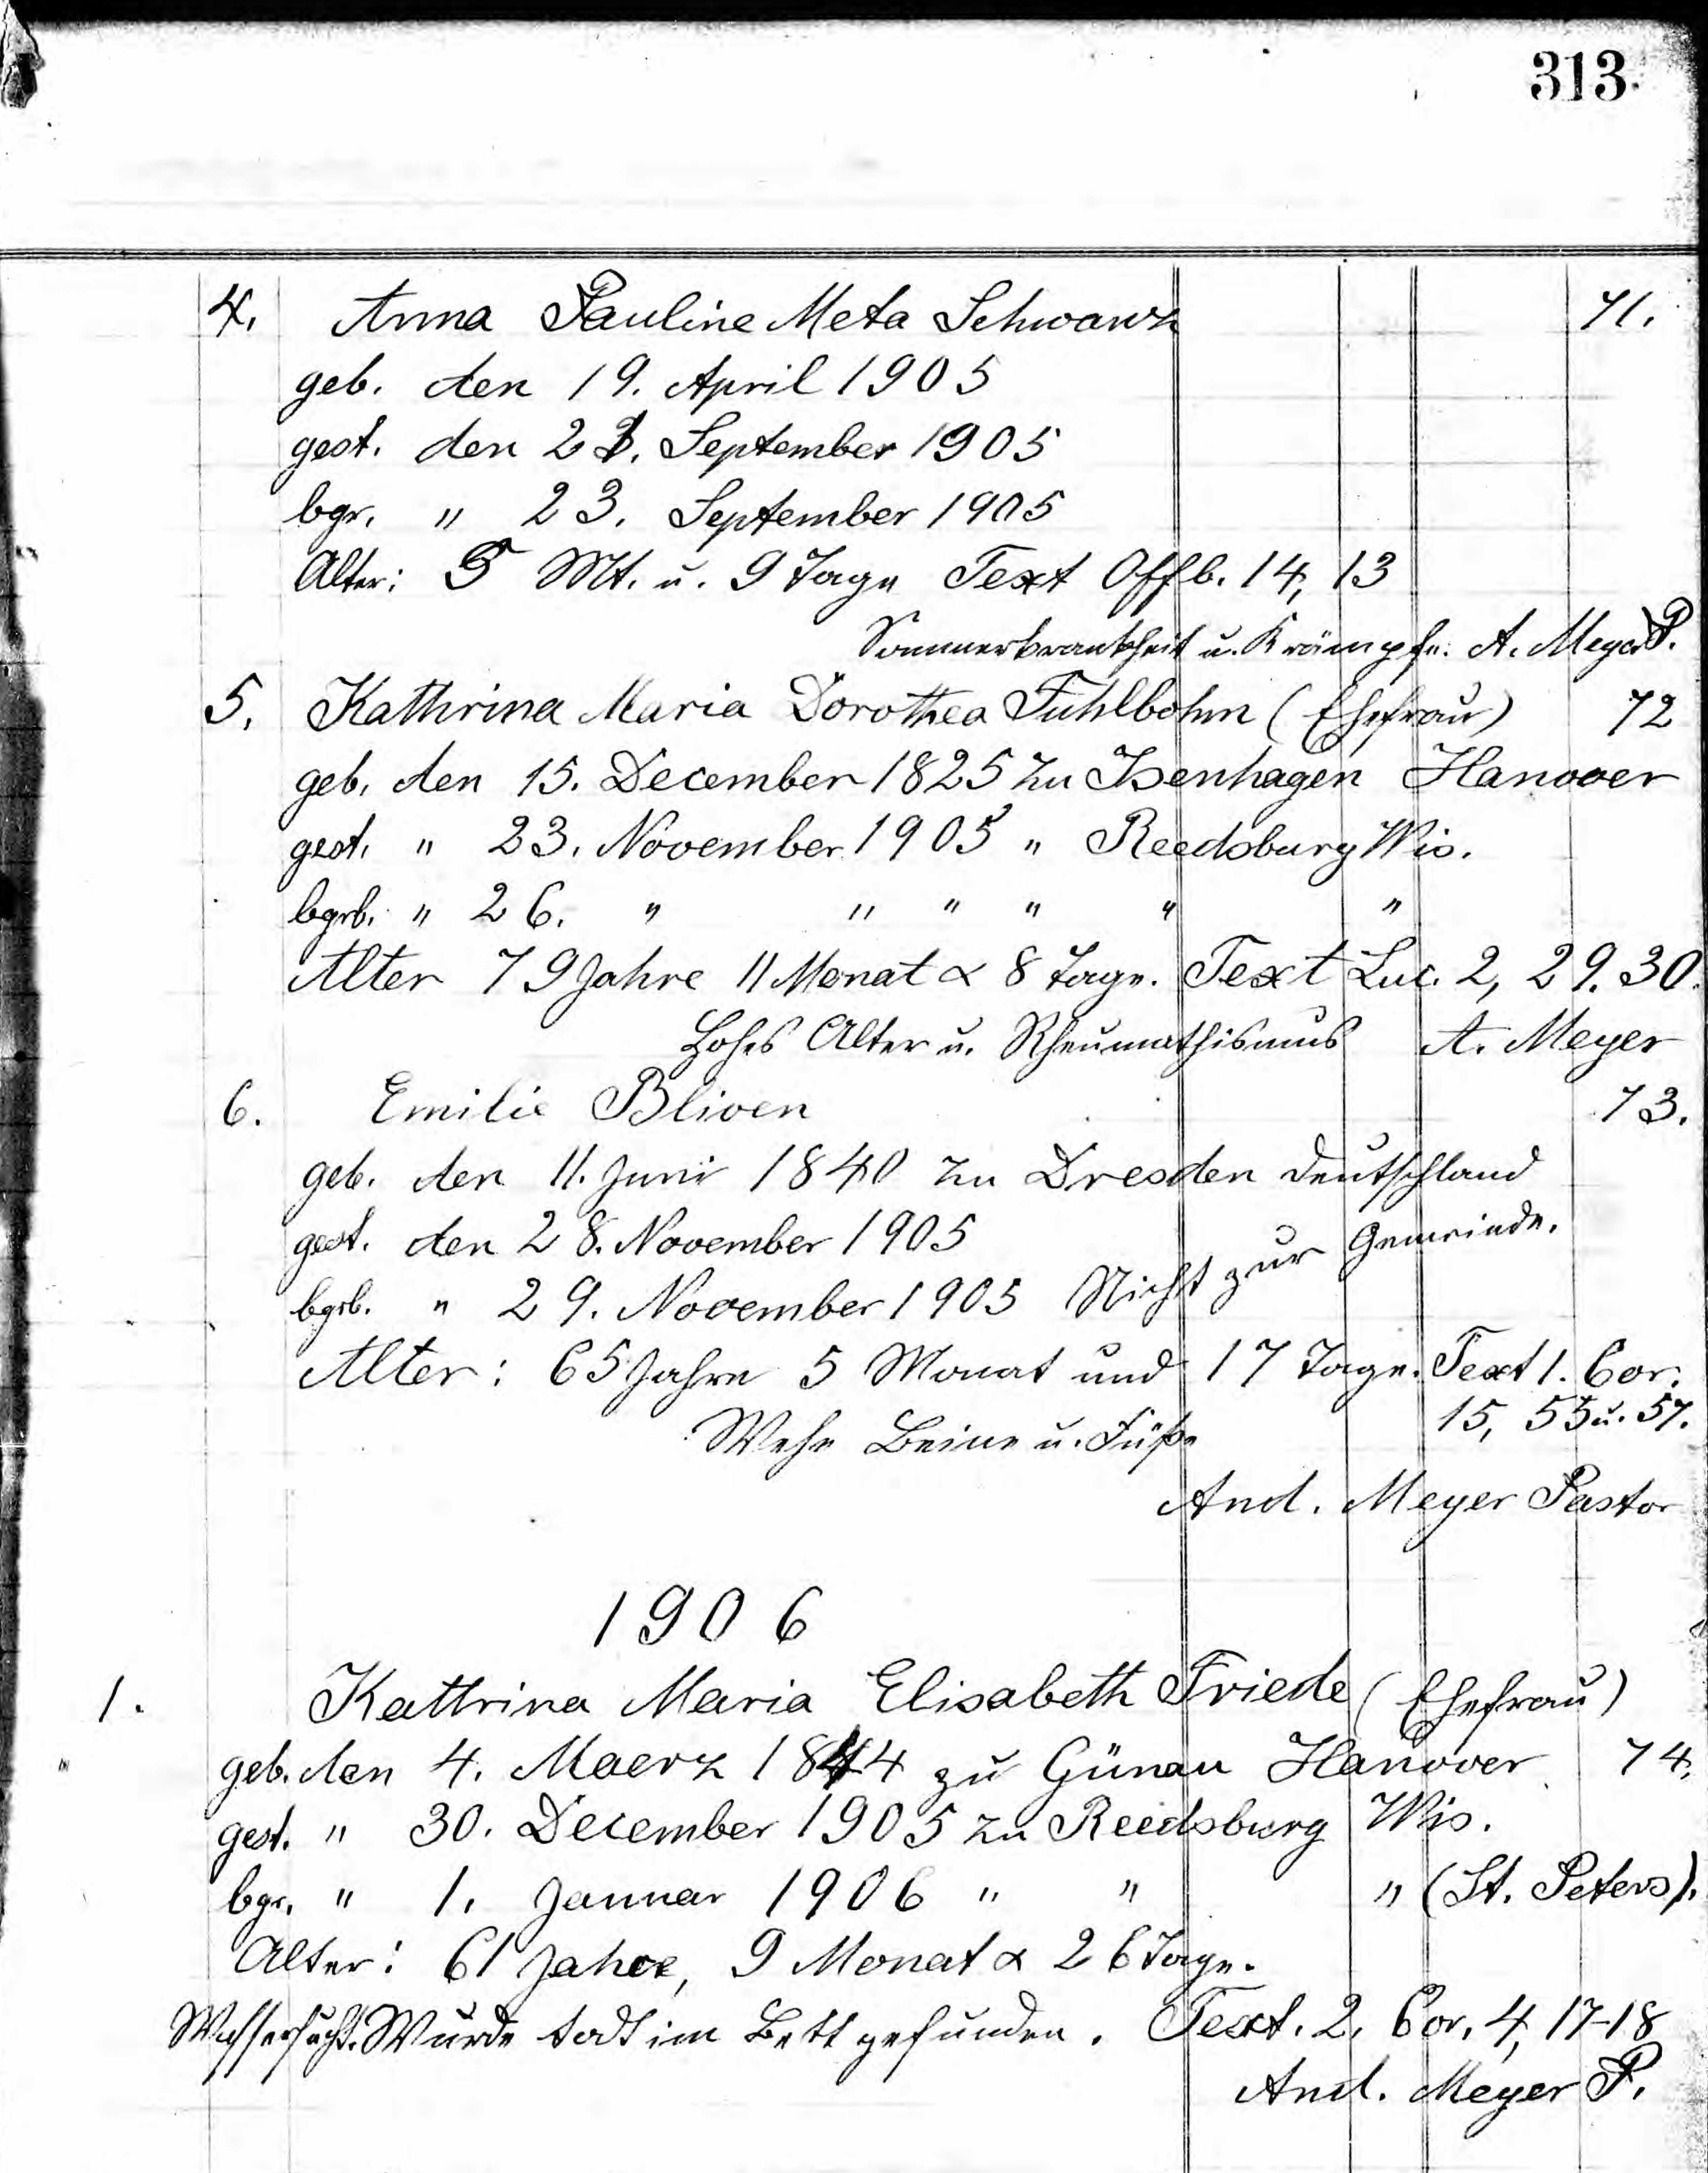 313
4. Anna Pauline Meta Schwarz 71.
geb. den 19. April 1905
gest. den 21. September 1905
bgr. " 23. September 1905
Alter: 5 Mt. u. 9 Tage Text Offb. 14, 13
Sommerkrankheit u. Krämpfe. A. Meyer P.
5. Kathrina Maria Dorothea Fuhlbohm (Ehefrau) 72
geb. den 15. December 1825 zu Isenhagen Hanover
gest. " 23. November 1905 " Reedsburg Wis.
bgrb. " 26. " " " " " "
Alter 79 Jahre 11 Monat & 8 Tage. Text Luc. 2, 29. 30.
Hohes Alter u. Rheumathismus A. Meyer
6. Emilie Bliven 73.
geb. den 11. Juni 1840 zu Dresden Deutschland
gest. den 28. November 1905
bgrb. " 29. November 1905 Nicht zur Gemeinde.
Alter: 65 Jahre 5 Monat und 17 Tage. Text 1. Cor.
15, 55 u. 57.
Wehe Beine u. Füße
And. Meyer Pastor
1906
1. Kathrina Maria Elisabeth Friede (Ehefrau)
geb. den 4. Maerz 1844 zu Günau Hanover 74.
gest. " 30. December 1905 zu Reedsburg Wis.
bgr. " 1. Januar 1906 " " " (St. Peters).
Alter: 61 Jahre, 9 Monat & 26 Tage.
Wassersucht. Wurde todt im Bett gefunden. Text. 2. Cor. 4, 17-18
And. Meyer P.